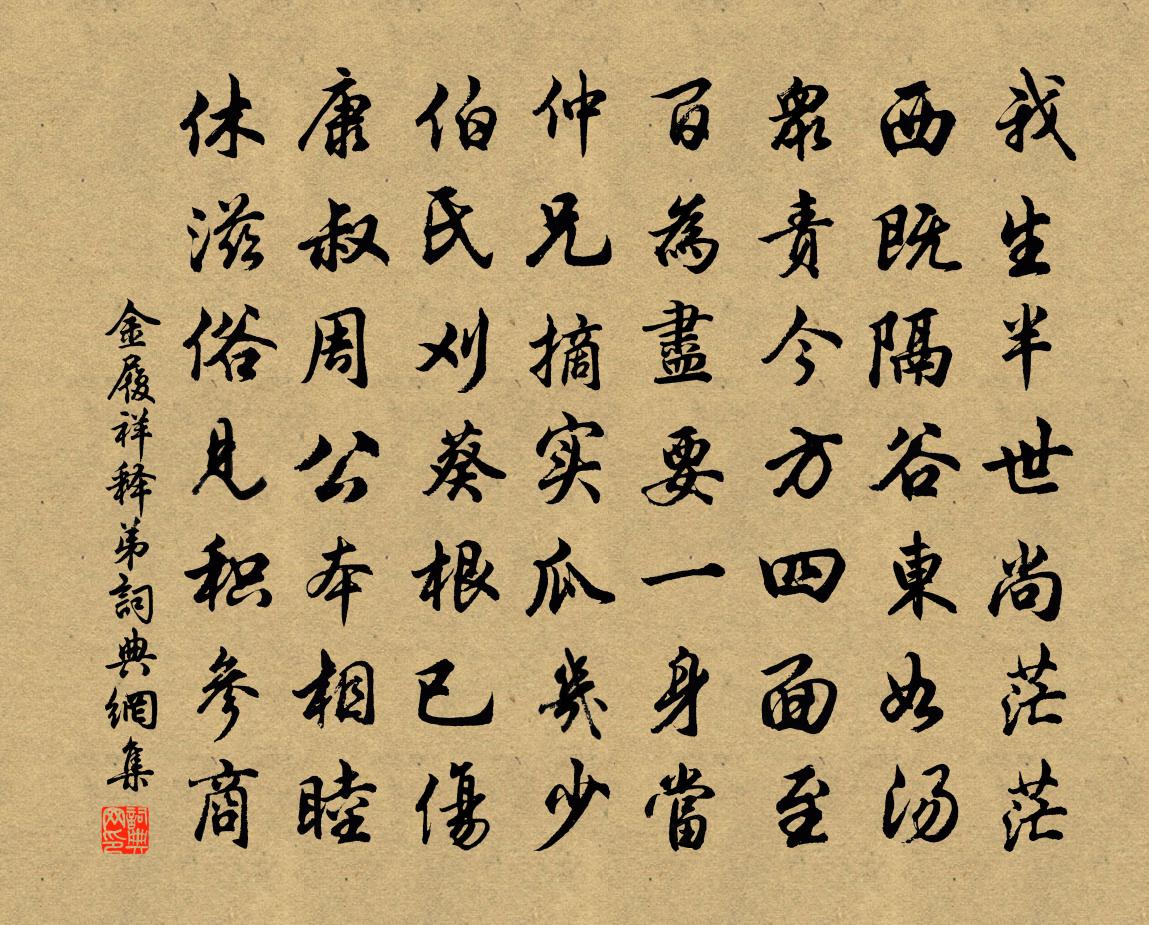 我生半世尚茫茫
西既隔谷東如汤
眾责今方四面至
百為盡要一身當
仲兄摘实瓜幾少
伯氏刈葵根已傷
康叔周公本相睦
休滋俗見积參商
金履祥释弟詞典網集
詞典網印